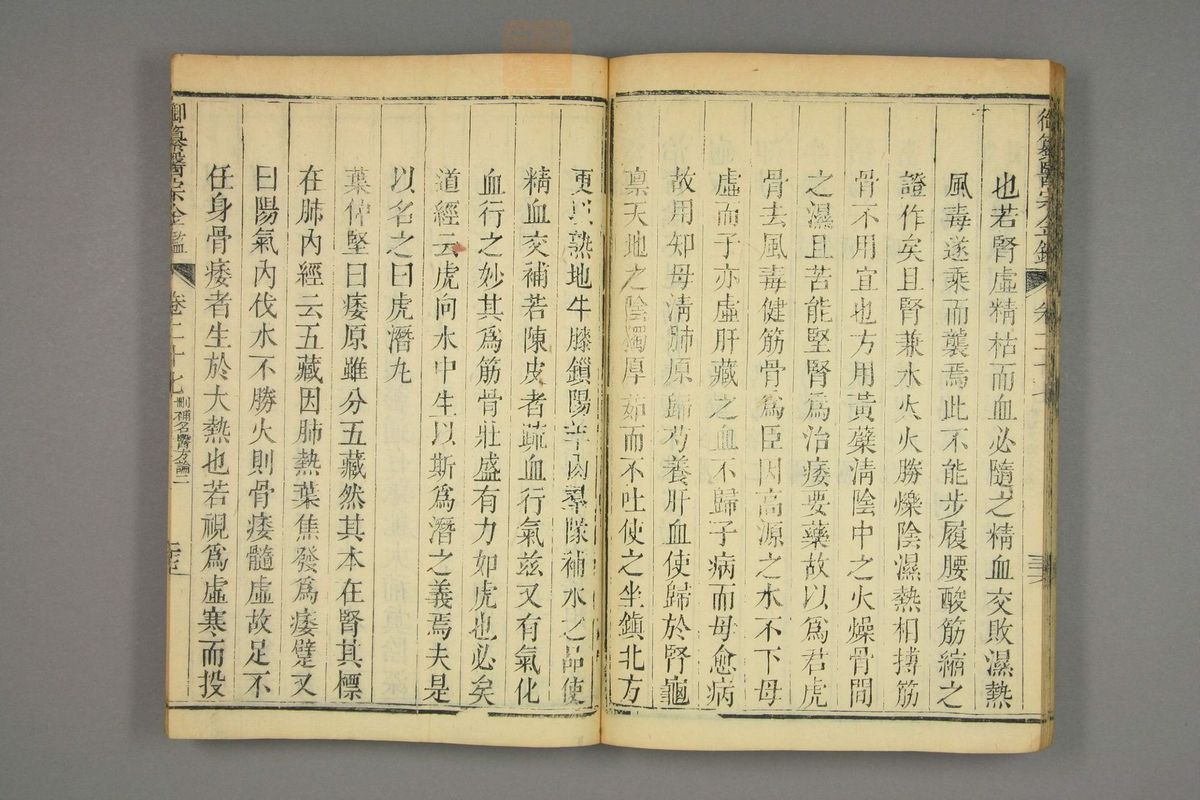 御纂醫宗全鑑 卷二十七
也若腎虛精枯而血必隨之精血交敗濕熱
風毒遂乘而襲焉此不能步履腰酸筋縮之
證作矣且腎兼水火火勝爍陰濕熱相搏筋
骨不用宜也方用黃蘗清陰中之火燥骨間
之濕且苦能堅腎爲治痿要藥故以爲君虎
骨去風毒健筋骨爲臣因高源之水不下母
虛而子亦虛肝藏之血不歸子病而母愈病
故用知母清肺原歸芍養肝血使歸於腎龜
禀天地之陰獨厚茹而不吐使之坐鎮北方
更以熟地牛膝鎖陽羊肉羣隊補水之品使
精血交補若陳皮者疏血行氣茲又有氣化
血行之妙其爲筋骨壯盛有力如虎也必矣
道經云虎向水中生以斯爲潛之義焉夫是
以名之曰虎潛丸
葉仲堅曰痿原雖分五藏然其本在腎其標
在肺內經云五藏因肺熱葉焦發爲痿躄又
曰陽氣內伐水不勝火則骨痿髓虛故足不
任身骨痿者生於大熱也若視爲虛寒而投
御纂醫宗金鑑 卷二十七 刪補名醫方論二